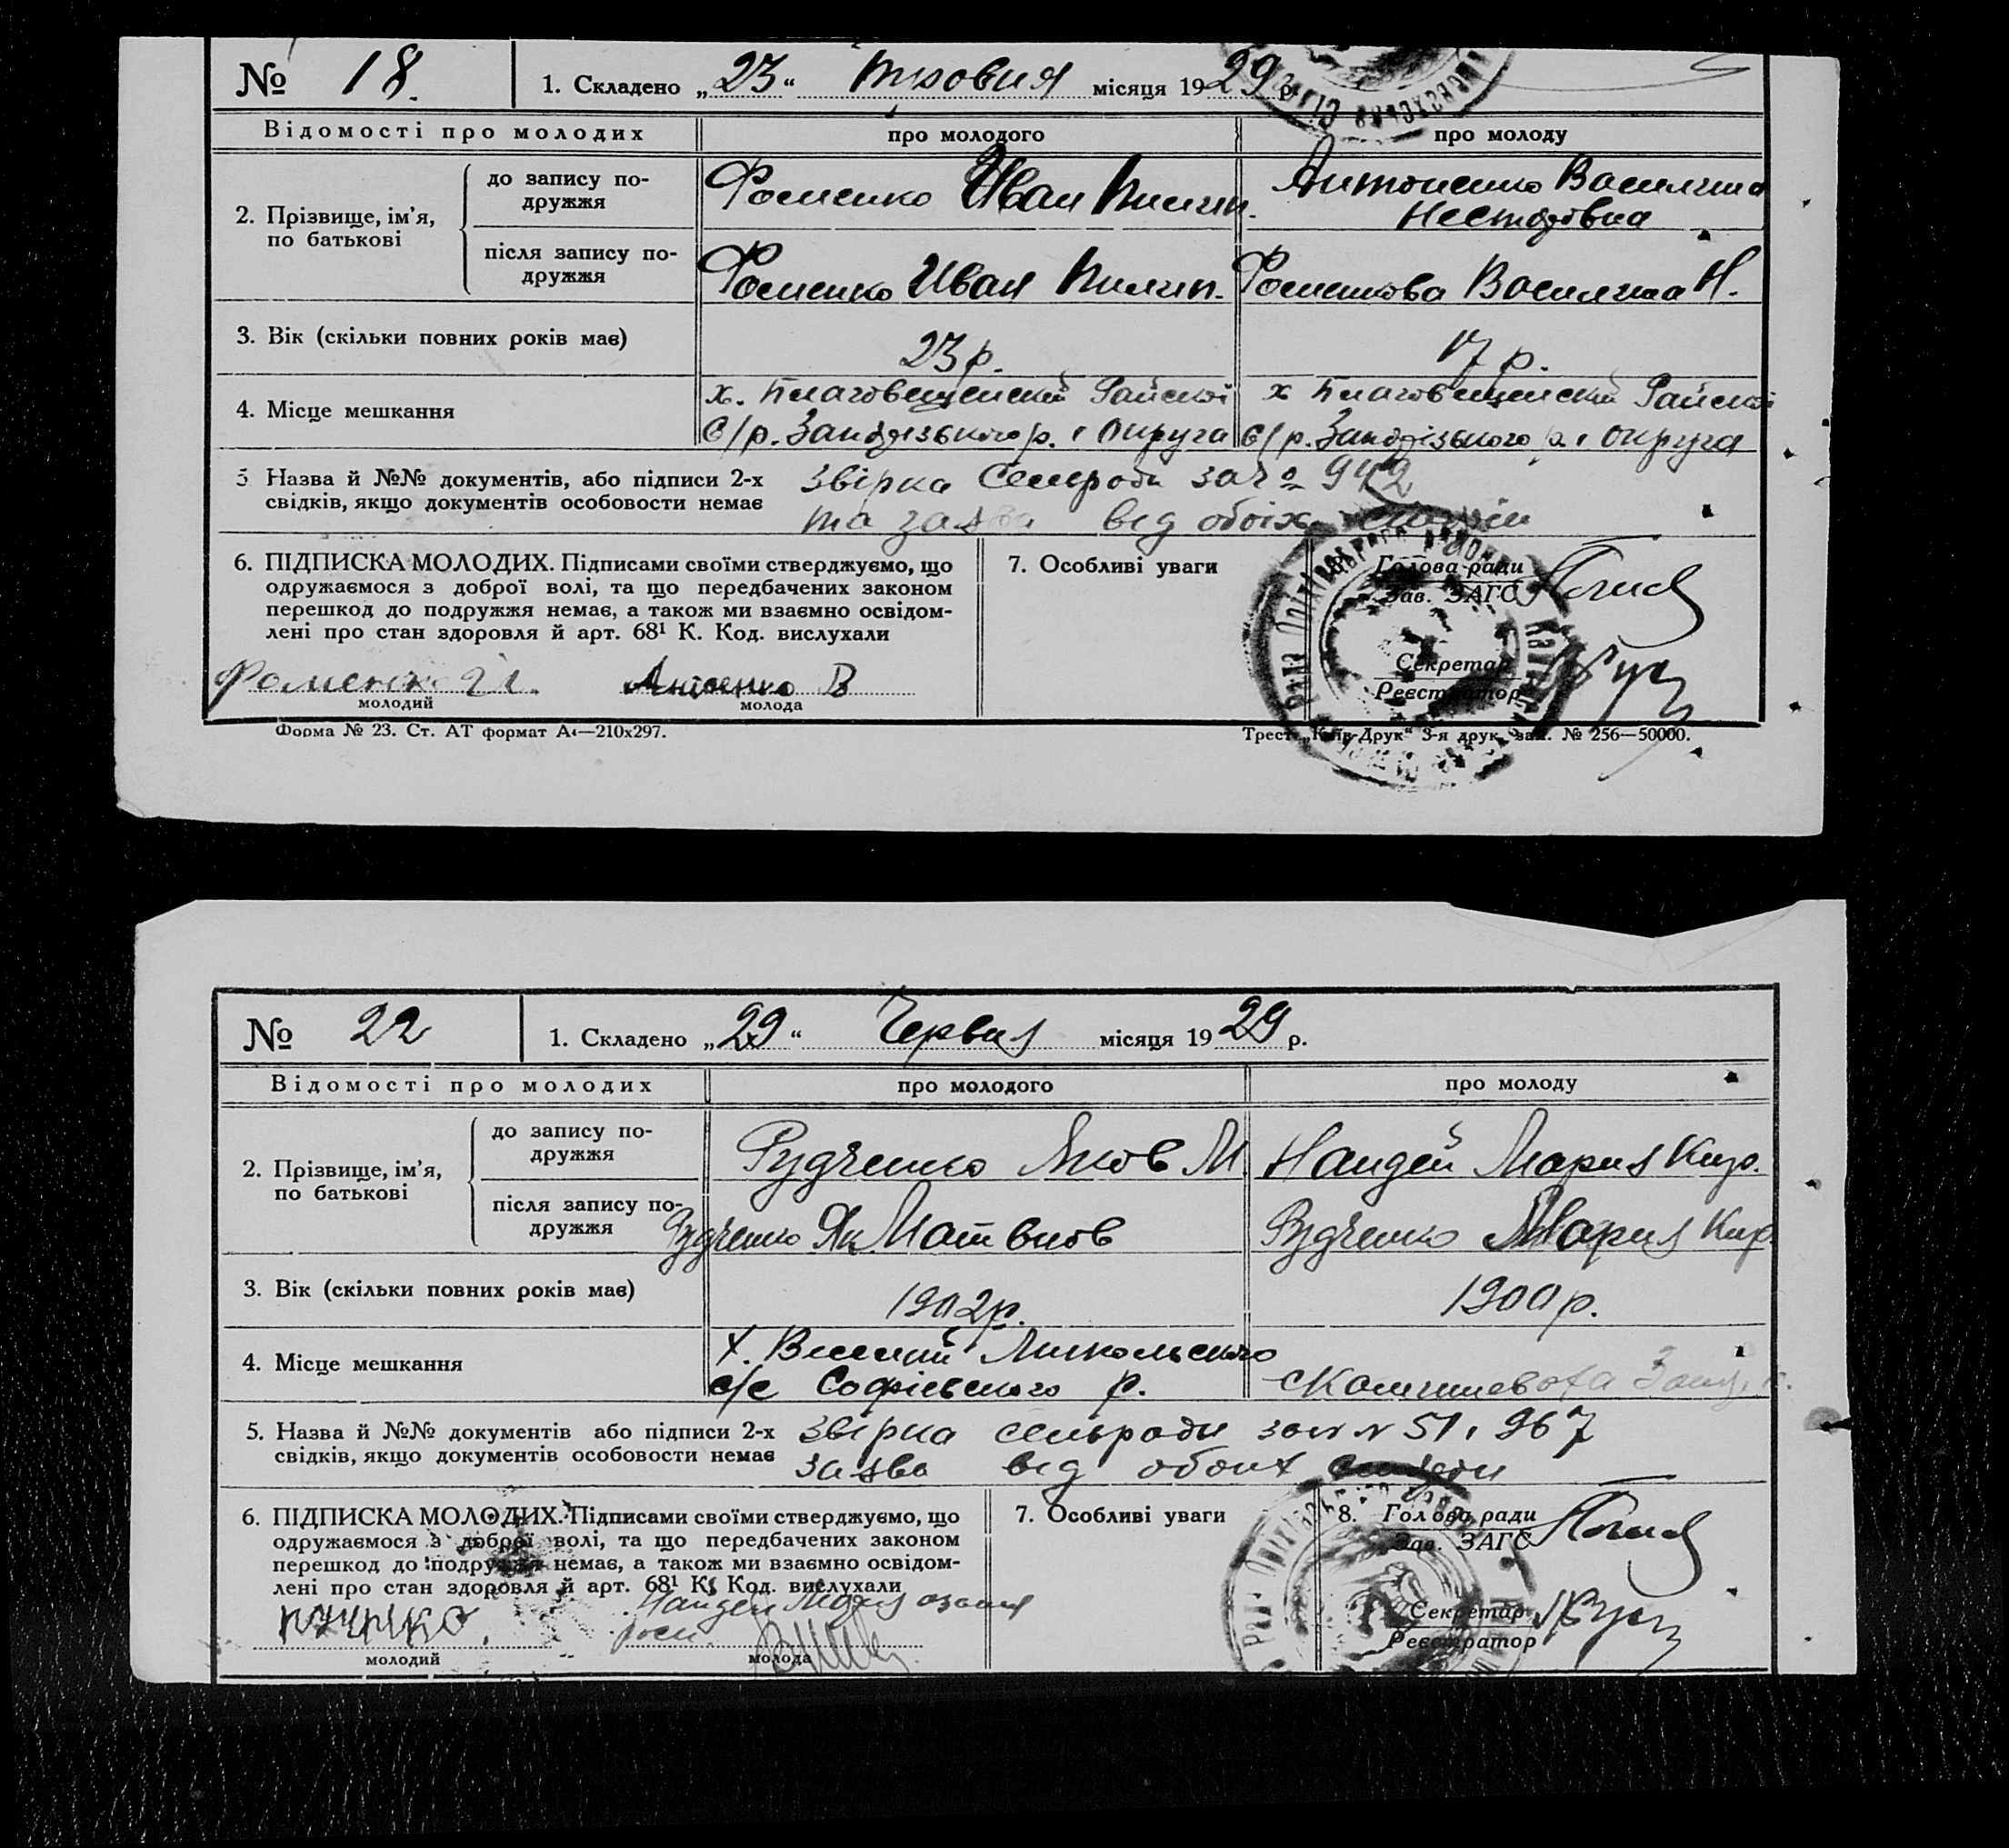 № 18. 1. Складено „23“ травня місяця 1929 р.
Відомості про молодих про молодого про молоду
2. Прізвище, ім’я, по батькові
до запису по-
дружжя
Фоменко Иван Пилип. Антоненко Василина
Несторовна
після запису по-
дружжя
Фоменко Иван Пилип. Фоменкова Василина Н.
3. Вік (скільки повних років має) 23 р. 17 р.
4. Місце мешкання
х. Благовещенский Райской х Благовещенский Райской
С/р. Запорізького р. і округа с/р. Запорізького р. і округа
5 Назва й №№ документів, або підписи 2-х звірка Сельради за № 942
свідків, якщо документів особовости немає та заява від обоіх сторін
6. ПІДПИСКА МОЛОДИХ. Підписами своїми стверджуємо, що
одружаємося з доброї волі, та що передбачених законом
перешкод до подружжя немає, а також ми взаємно освідом-
лені про стан здоровля й арт. 68¹ К. Код. вислухали
Фоменко И. Антоенко В
молодий молода
7. Особливі уваги
8. Голова ради
Зав. ЗАГС
Секретар
Реєстратор
Форма № 23. Ст. АТ формат А4—210х297. Трест „Київ-Друк“ 3-я друк. зам. № 256—50000.
№ 22 1. Складено „29“ Червня місяця 1929 р.
Відомості про молодих про молодого про молоду
2. Прізвище, ім’я, по батькові
до запису по-
дружжя
Рудченко Яков М Нандей Мария Кир.
після запису по-
дружжя
Рудченко Як Матвиов Рудченко Мария Кир
3. Вік (скільки повних років має) 1902р. 1900р.
4. Місце мешкання
х. Великий Микольского
с/с Софієвського р. Камишеваха
5. Назва й №№ документів або підписи 2-х звірка сельради за № № 51 і 967
свідків, якщо документів особовости немає заява від обоих сторін
6. ПІДПИСКА МОЛОДИХ. Підписами своїми стверджуємо, що
одружаємося з доброї волі, та що передбачених законом
перешкод до подружжя немає, а також ми взаємно освідом-
лені про стан здоровля й арт. 68¹ К. Код. вислухали
Нандей Мария
молодий молода
7. Особливі уваги
8. Голова ради
Зав. ЗАГС
Секретар
Реєстратор